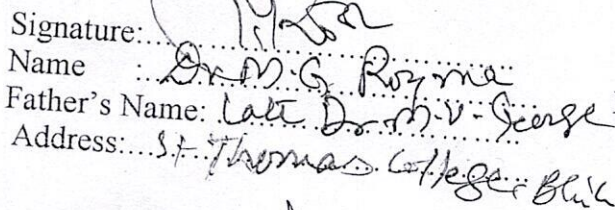 Signature:
Name : Dr. M. G. Roymon
Father's Name: Late Dr. M. V. George
Address: St Thomas College,